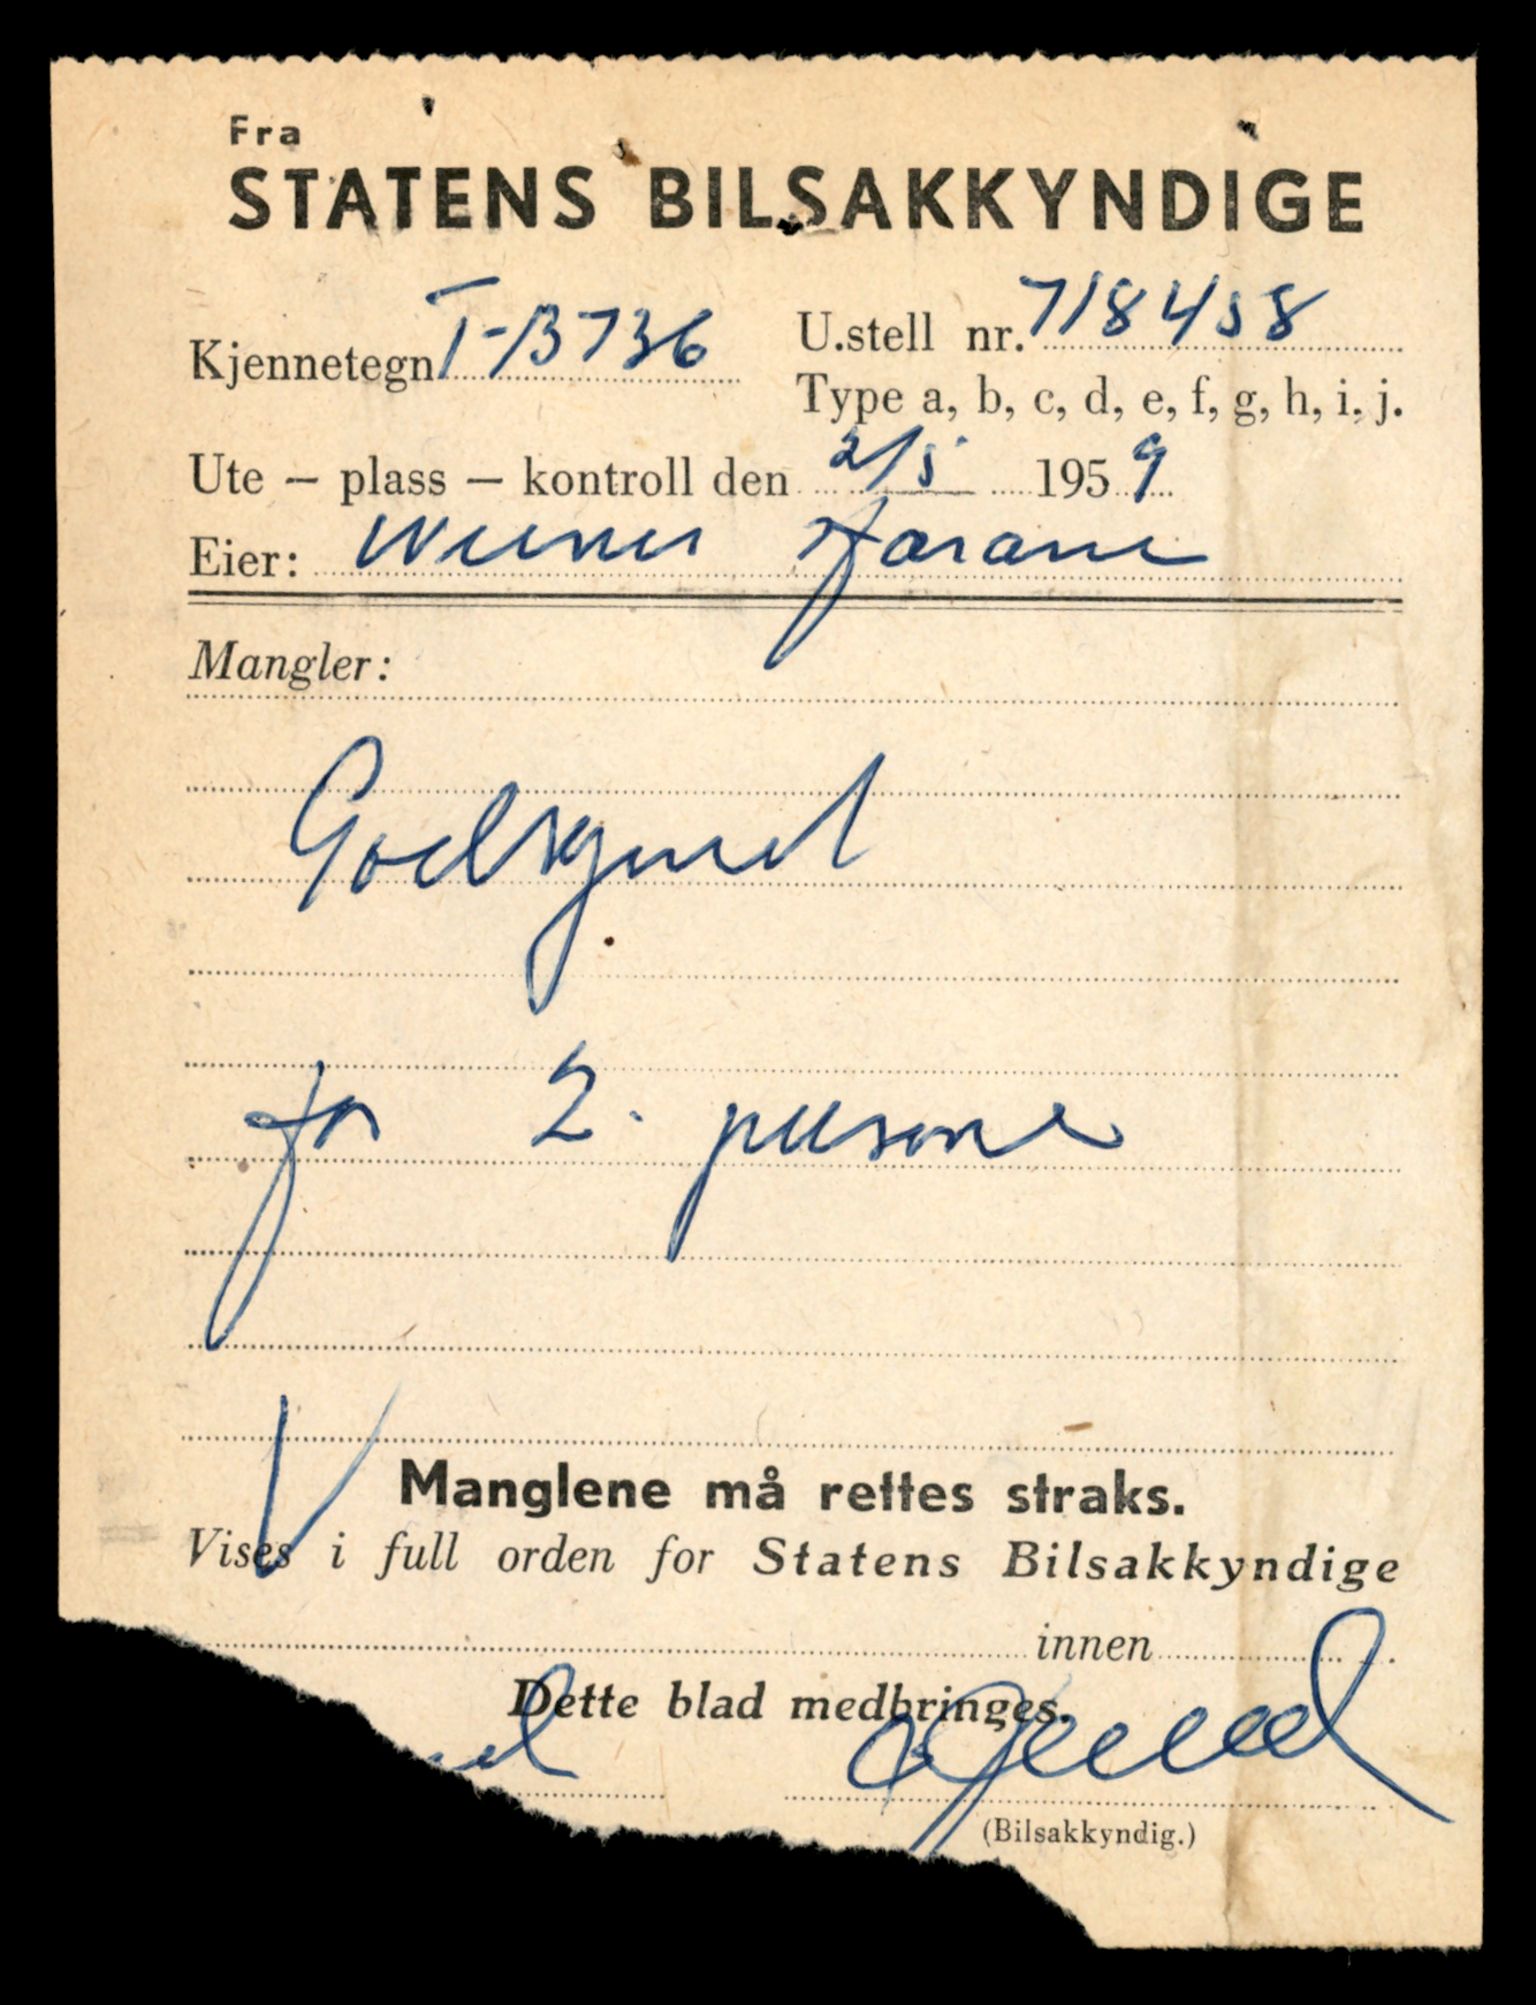 Fra
STATENS BILSAKKYNDIGE
Kjennetegn T-13736
U.stell nr. 718458
Type a, b, c, d, e, f, g, h, i, j.
Ute – plass – kontroll den 2/5 1959
Eier: Werner
Mangler:
Godkjent
for 2 personer
Manglene må rettes straks.
Vises i full orden for Statens Bilsakkyndige
innen
Dette blad medbringes.
(Bilsakkyndig.)